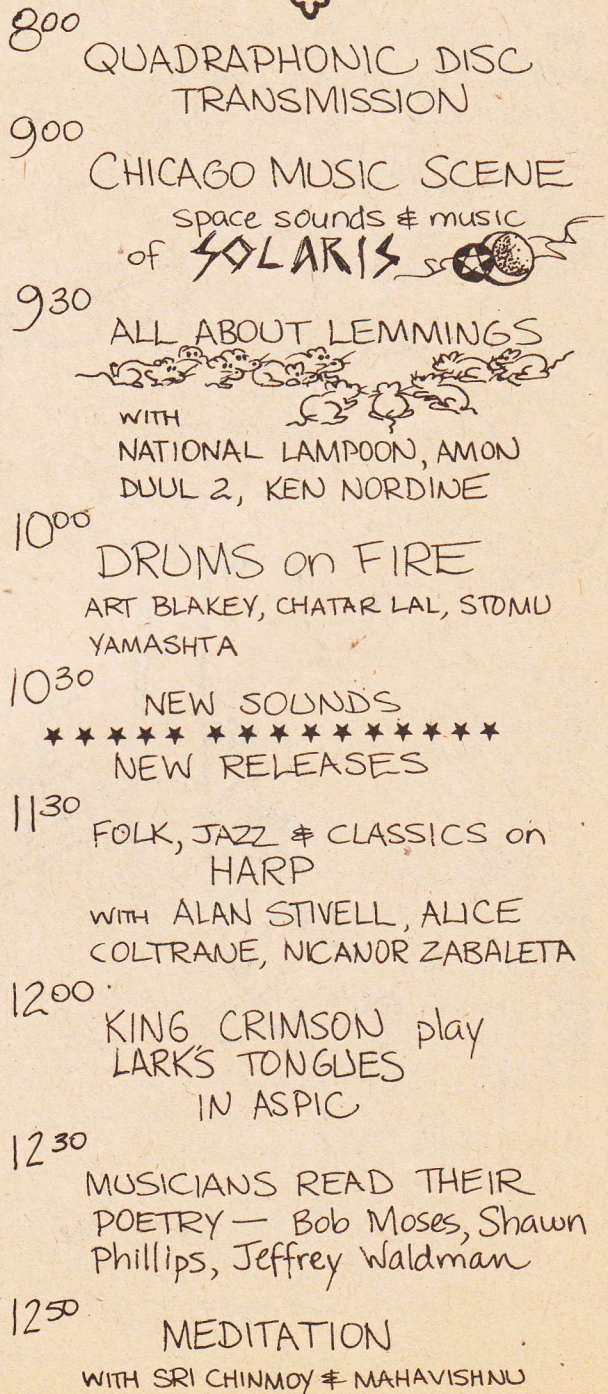 800
QUADRAPHONIC DISC
TRANSMISSION
900
CHICAGO MUSIC SCENE
space sounds & music
of SOLARIS
930
ALL ABOUT LEMMINGS
WITH
NATIONAL LAMPOON, AMON
DUUL 2, KEN NORDINE
1000
DRUMS on FIRE
ART BLAKEY, CHATAR LAL, STOMU
YAMASHTA
1030
NEW SOUNDS
NEW RELEASES
1130
FOLK, JAZZ & CLASSICS on
HARP
WITH ALAN STIVELL, ALICE
COLTRANE, NICANOR ZABALETA
1200
KING CRIMSON play
LARK'S TONGUES
IN ASPIC
1230
MUSICIANS READ THEIR
POETRY — Bob Moses, Shawn
Phillips, Jeffrey Waldman
1250
MEDITATION
WITH SRI CHINMOY & MAHAVISHNU